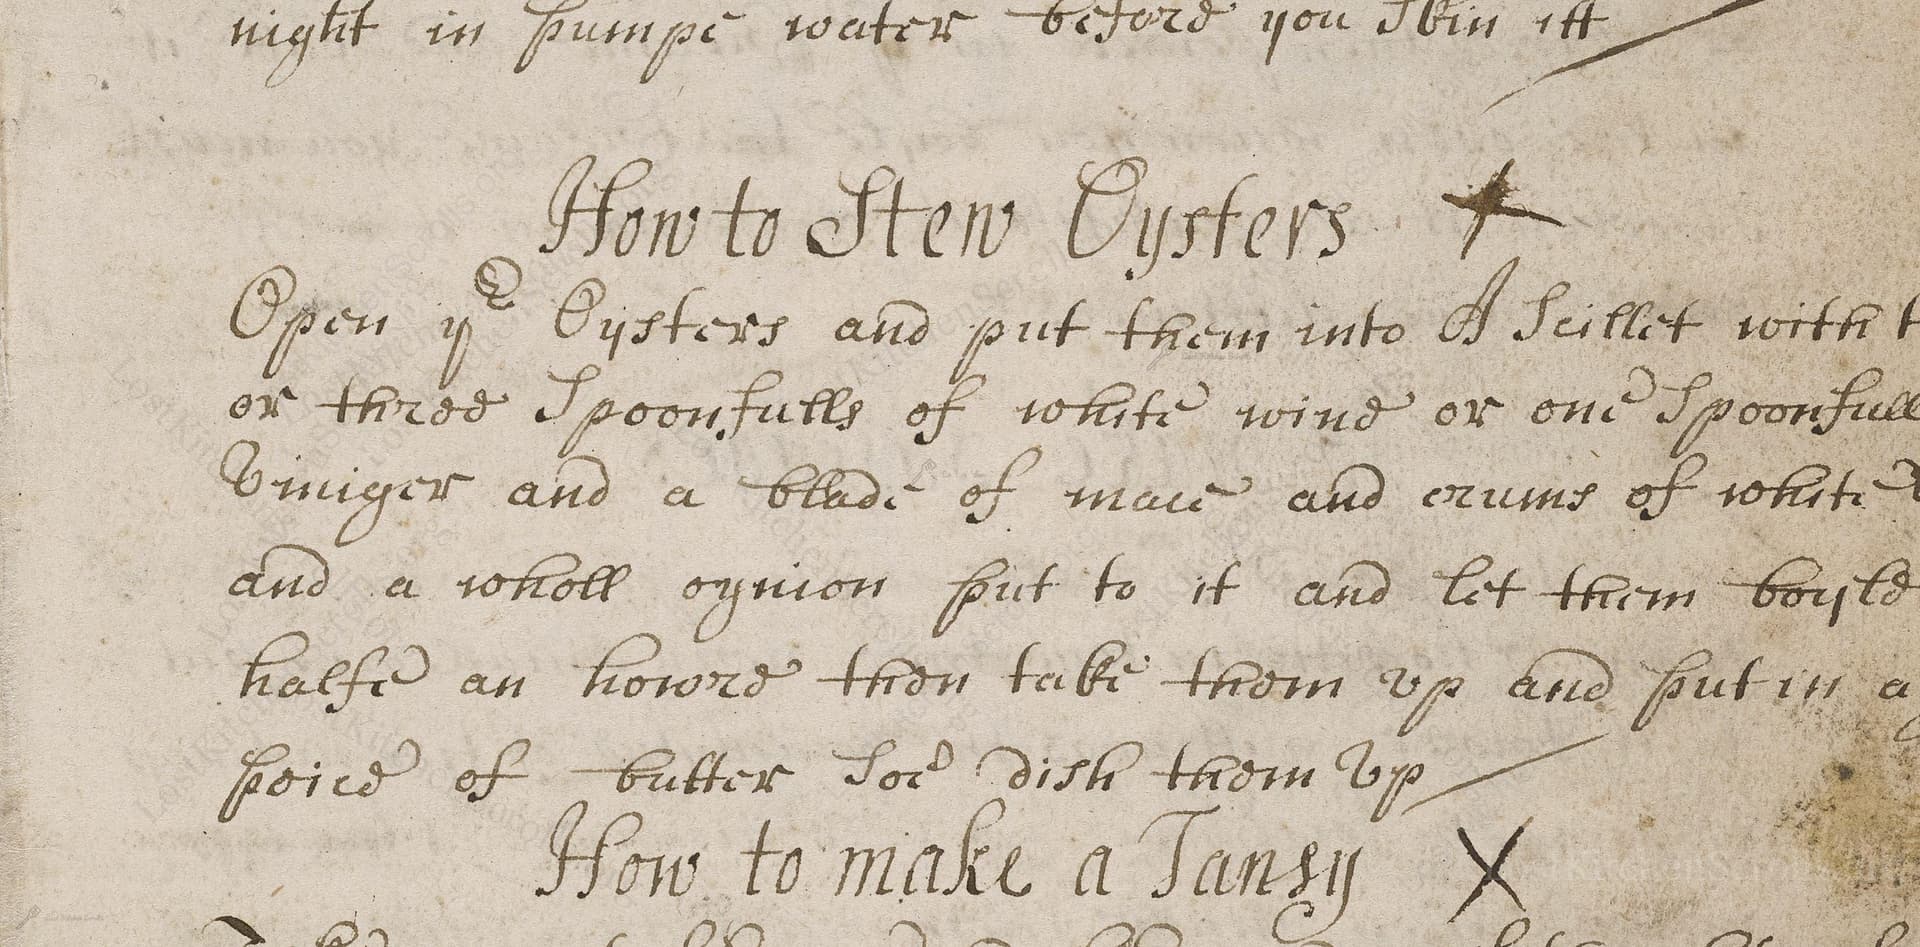 night in pumpe water before you Skin itt
How to Stew Oysters
Open ye Oysters and put them into A Scillet with
or three Spoonfulls of white wine or one Spoonfull
Viniger and a blade of mace and crums of white
and a wholl oynion put to it and let them boyle
halfe an howre then take them vp and put in a
peice of butter Soe dish them Vp
How to make a Tansy